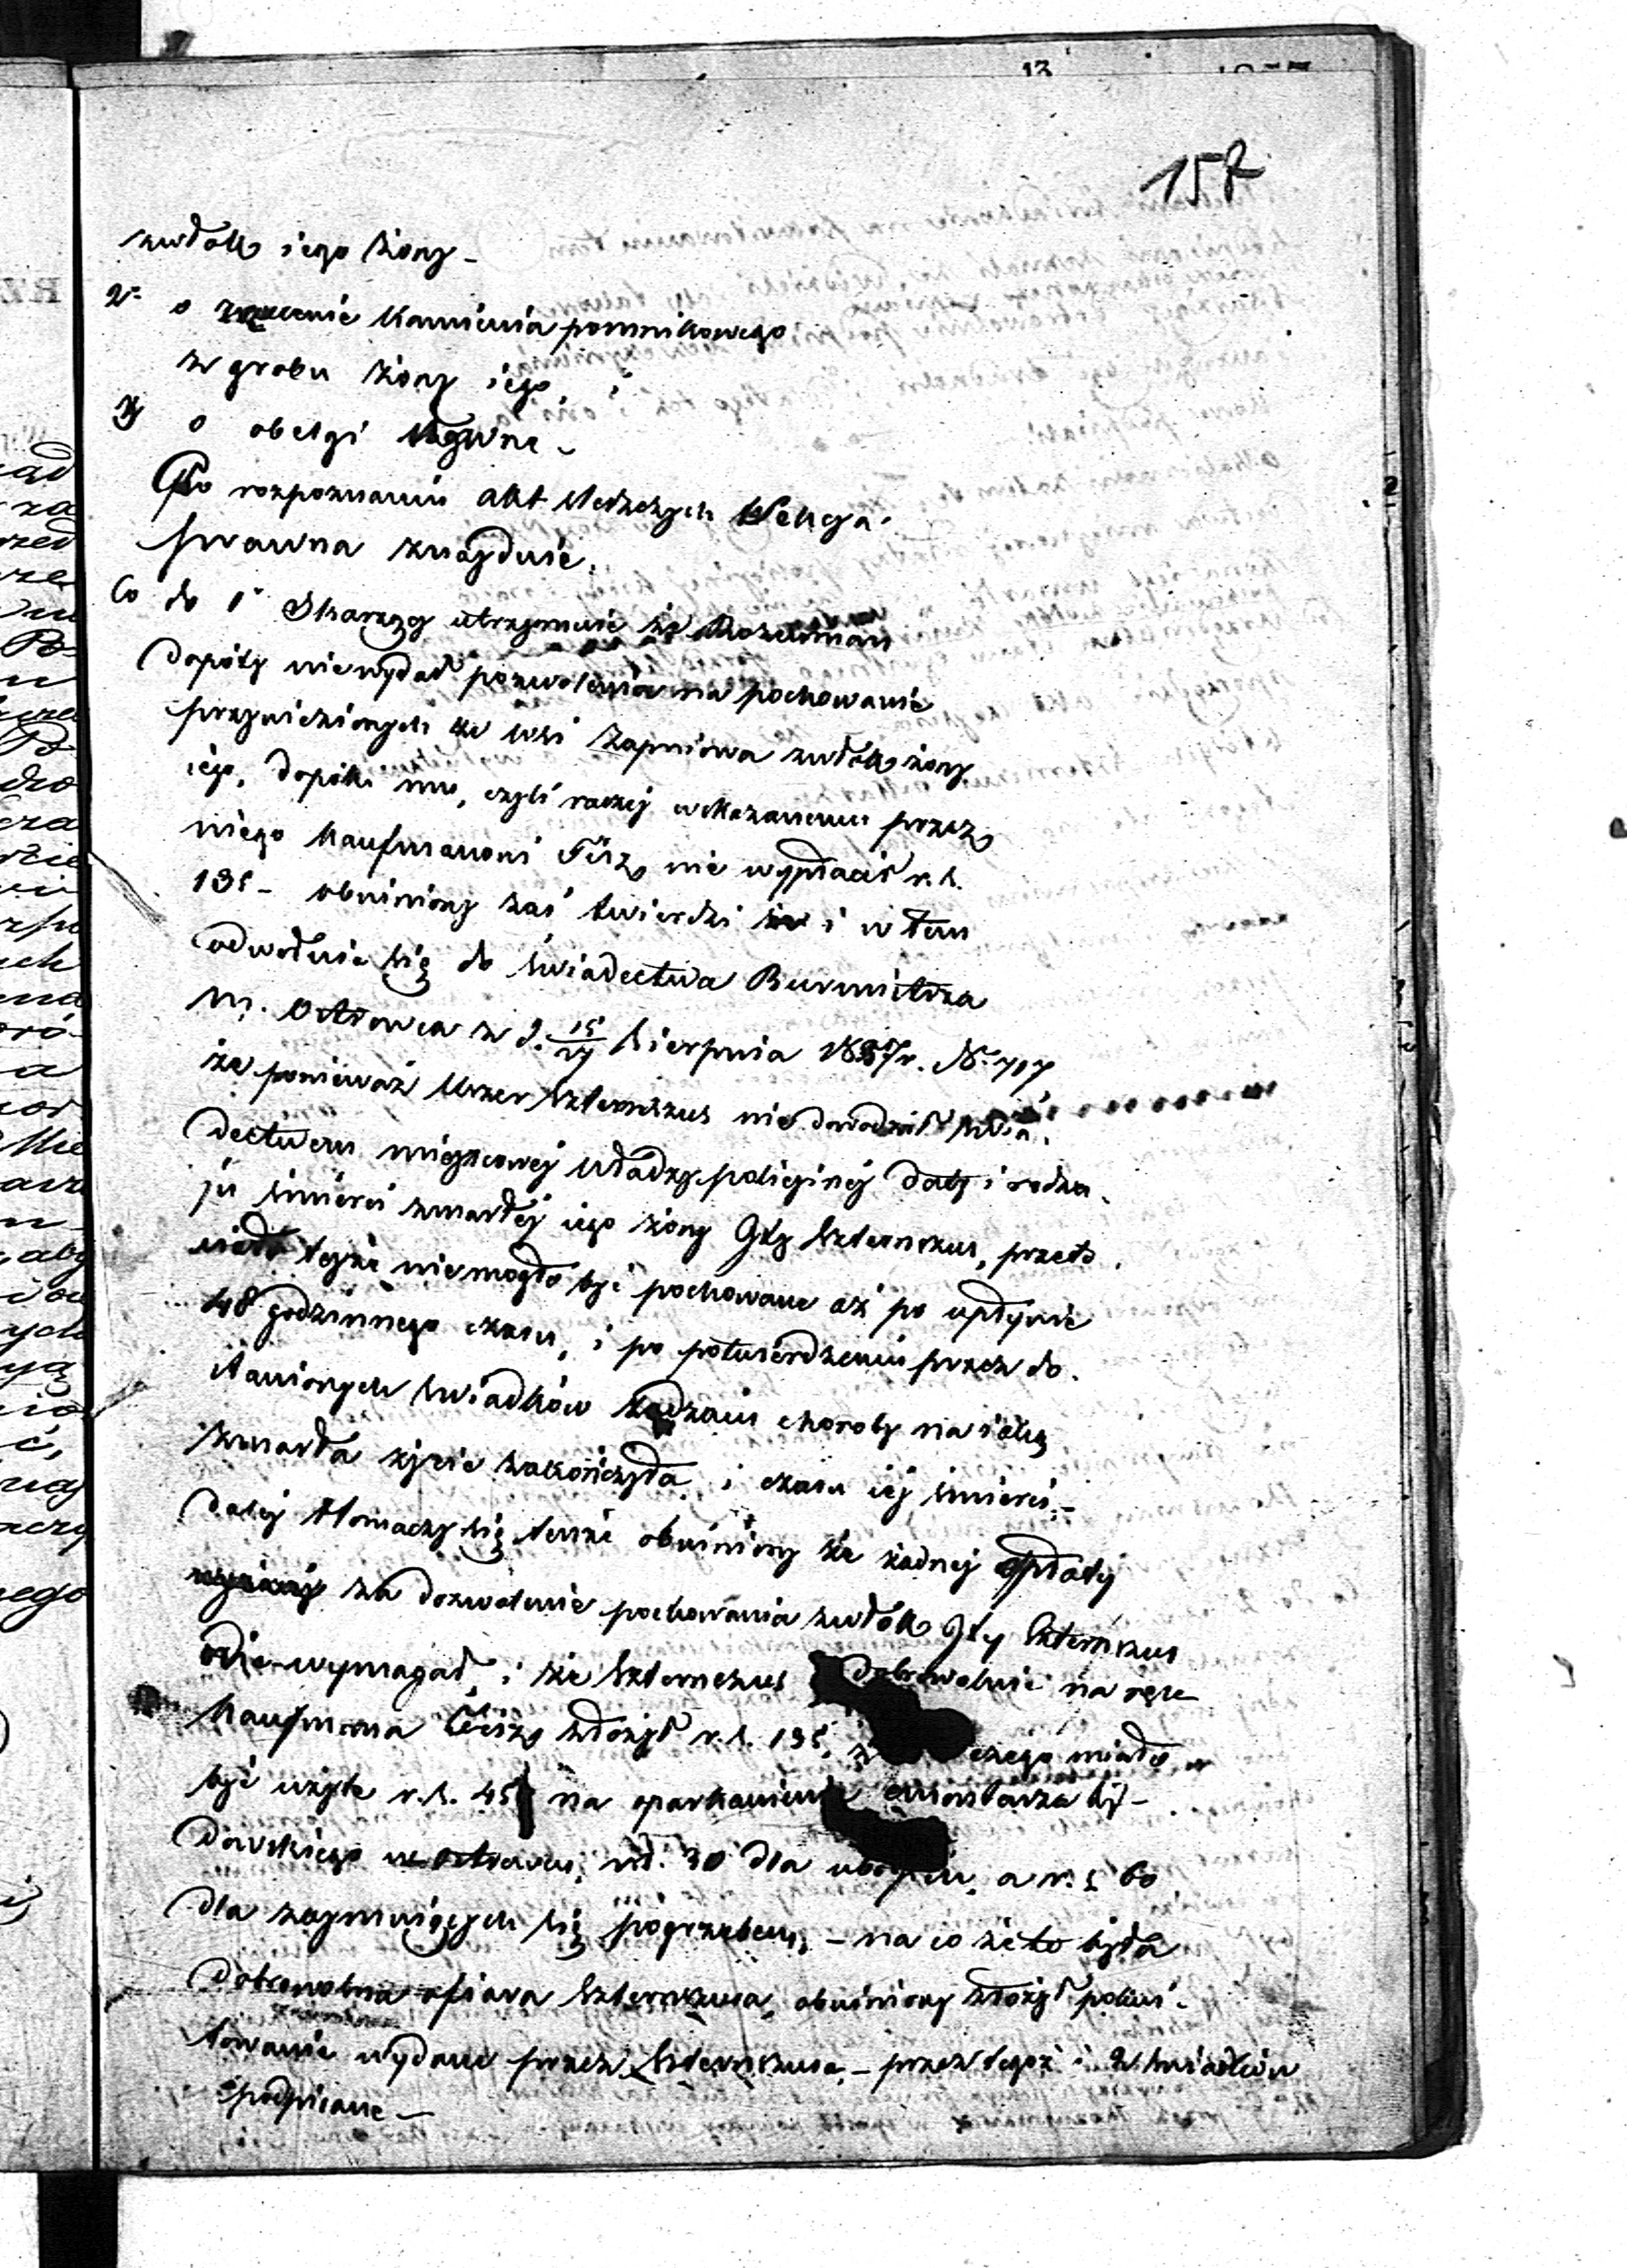 13
157
zwłok iego żony –
2° o zrzucenie kamienia pomnikowego
z grobu żony iego, i
3) o obelgi słowne –
Po rozpoznaniu akt śledczych Sekcya
prawna znajduie.
Co do 1° Skarżący utrzymuie że Rozenman
dopóty niewydał pozwolenia na pochowanie
przywiezionych ze wsi zwłok żony
iego, dopóki mu, czyli raczej wskazanemu przez
niego Kaufmanowi nie wypłacił r.s.
135 – obwiniony zaś twierdzi i w tem
odwołuie się do świadectwa Burmistrza
m. Ostrowca z d. 15/27 Sierpnia 1857 r. N° 717,
że ponieważ Szternszus nie dowodził świa-
dectwem miejscowej władzy policyjnej daty i rodza-
ju śmierci zmarłej iego żony Gty Szternszus, przeto
ciało tejże niemogło być pochowane aż po upływie
48 godzinnego czasu, i po potwierdzeniu przez do-
stawionych świadków rodzaiu choroby na iaką
zmarła życie zakończyła, i czasu iéj śmierci –
Daléj tłomaczy się tenże obwiniony że żadnej opłaty
za dozwolenie pochowania zwłok Gty Szternszus
nie wymagał, i że Szternszus dobrowolnie na ręce
Kaufmana złożył r.s. 135, z czego miało
być użyte r.s. 45 na oparkanienie cmentarza ży-
dowskiego w Ostrowcu, rs. 30 dla ubogich, a r.s 60
dla zajmuiących się pogrzebem, – na co że to była
dobrowolna ofiara Szternszusa, obwiniony złożył pokwi-
towanie wydane przez Szternszusa, – przez tegoż i 2 świadków
podpisane –